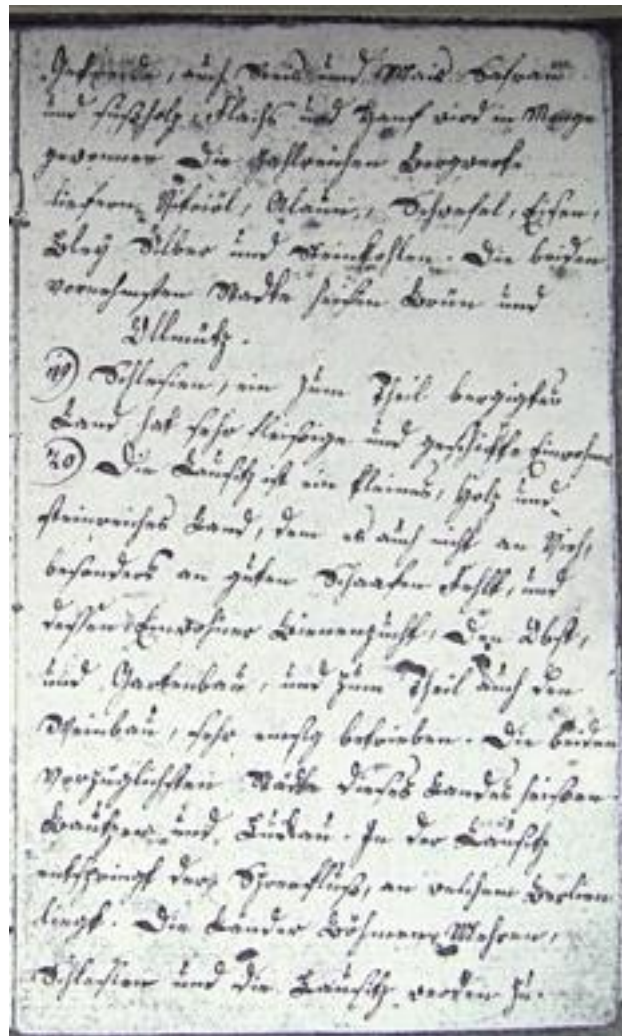 Getreide, auch Reis und Mais Safran
und Süßholz, Flachs und Hanf wird in Menge
gewonnen Die zahlreichen Bergwerke
liefern Vitriol, Alaun, Schwefel, Eisen,
Bley Silber und Steinkohlen. Die beiden
vornehmsten Stadte heißen Brün und
Ollmütz.
19) Schlesien, ein zum Theil bergigtes
Land hat sehr fleißige und geschickte Einwohner
20) Die Lausitz ist ein kleines, Holz und
steinreiches Land, dem es auch nicht an Vieh,
besonders an guten Schaafen fehlt, und
dessen Einwohner Bienenzucht, Den Obst,
und Gartenbau, und zum Theil auch den
Weinbau, sehr emsig betreiben. Die beiden
vorzüglichsten Städte dieses Landes heißen
Bautzen und Luckau. In der Lausitz
entspringt der Spreefluß, an welchem Berlien
liegt. Die Länder Böhmen, Mehren,
Schlesien und die Lausitz werden zu-